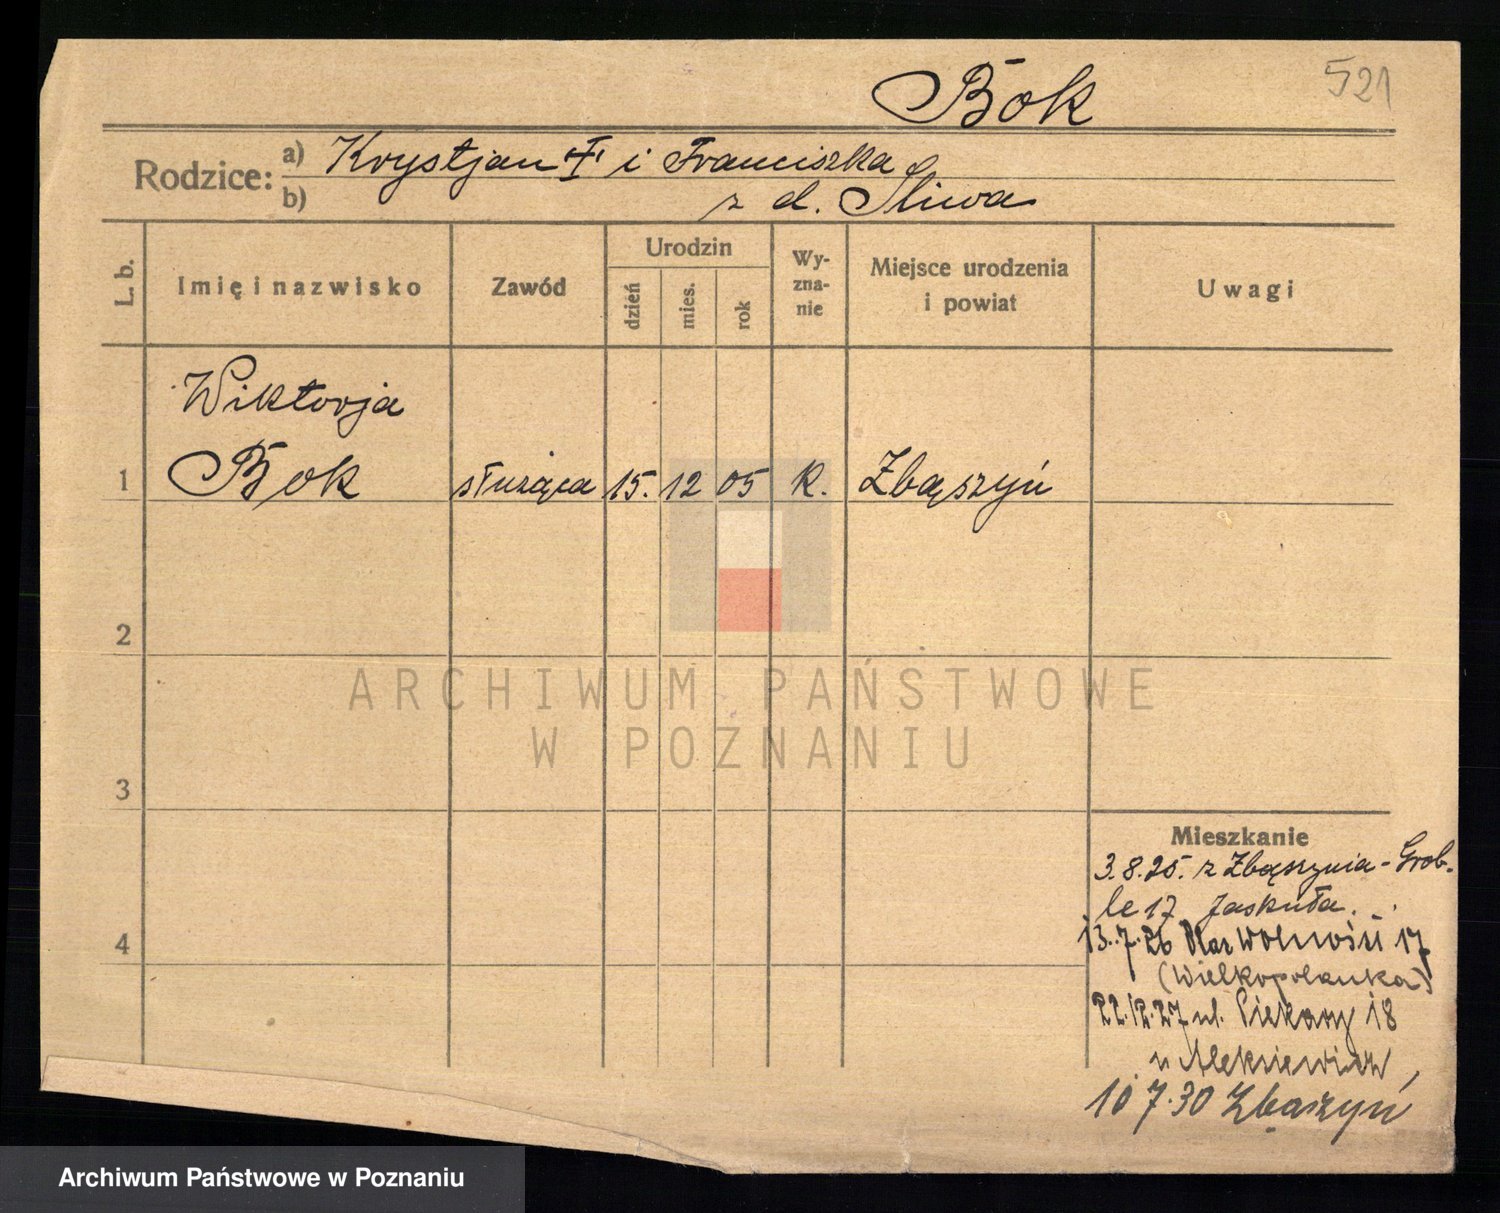 Bok
521
Rodzice: a) Krystjan i Franciszka
b) z d. Śliwa
L. b. Imię i nazwisko Zawód Urodzin dzień mies. rok Wyznanie Miejsce urodzenia i powiat Uwagi
Wiktorja
1 Bok służąca 15. 12 05 K. Zbąszyń
2
ARCHIWUM PAŃSTWOWE
W POZNANIU
3
Mieszkanie
3.8.25. z Zbąszynia - Grob-
le 17 Jaskuła.
4
13.7.26 Plac Wolności 17
(Wielkopolanka)
22.12.27 ul. Piekary 18
u
10 7.30 Zbąszyń
Archiwum Państwowe w Poznaniu